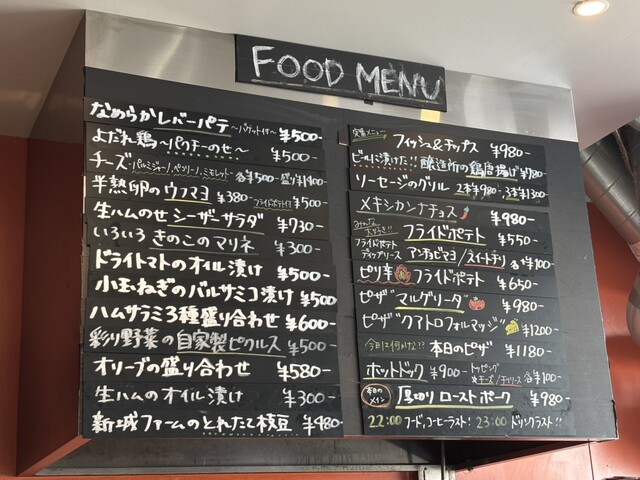 FOOD MENU
なめらかレバーパテ～バケット付～ ¥500-
よだれ鶏～パクチーのせ～ ¥500-
チーズ・パルミジャーノ、ペコリーノ、ミモレット 各¥500- 盛り¥1400
半熟卵のウフマヨ ¥380- フライドポテト付 ¥500-
生ハムのせシーザーサラダ ¥730-
いろいろきのこのマリネ ¥300-
ドライトマトのオイル漬け ¥500-
小玉ねぎのバルサミコ漬け ¥500
ハムサラミ3種盛り合わせ ¥600-
彩り野菜の自家製ピクルス ¥500-
オリーブの盛り合わせ ¥580-
生ハムのオイル漬け ¥300-
新城ファームのとれたて枝豆 ¥480-
定番メニュー フィッシュ&チップス ¥980-
ビールに漬けた!! 醸造所の鶏唐揚げ ¥780
ソーセージのグリル 2本¥980- 3本¥1300
メキシカンナチョス ¥980-
みんな大好き!! フライドポテト ¥550-
フライドポテトディップソース アンチョビマヨ/スイートチリ 各¥100-
ピリ辛フライドポテト ¥650-
ピザ"マルゲリータ" ¥980-
ピザ"クアトロフォルマッジ" ¥1200
今日は何かな?? 本日のピザ ¥1180-
ホットドック ¥900- トッピング チーズ/チリソース 各¥100-
本日のメイン 厚切りローストポーク ¥980-
22:00 フード、コーヒーラスト! 23:00 ドリンクラスト!!